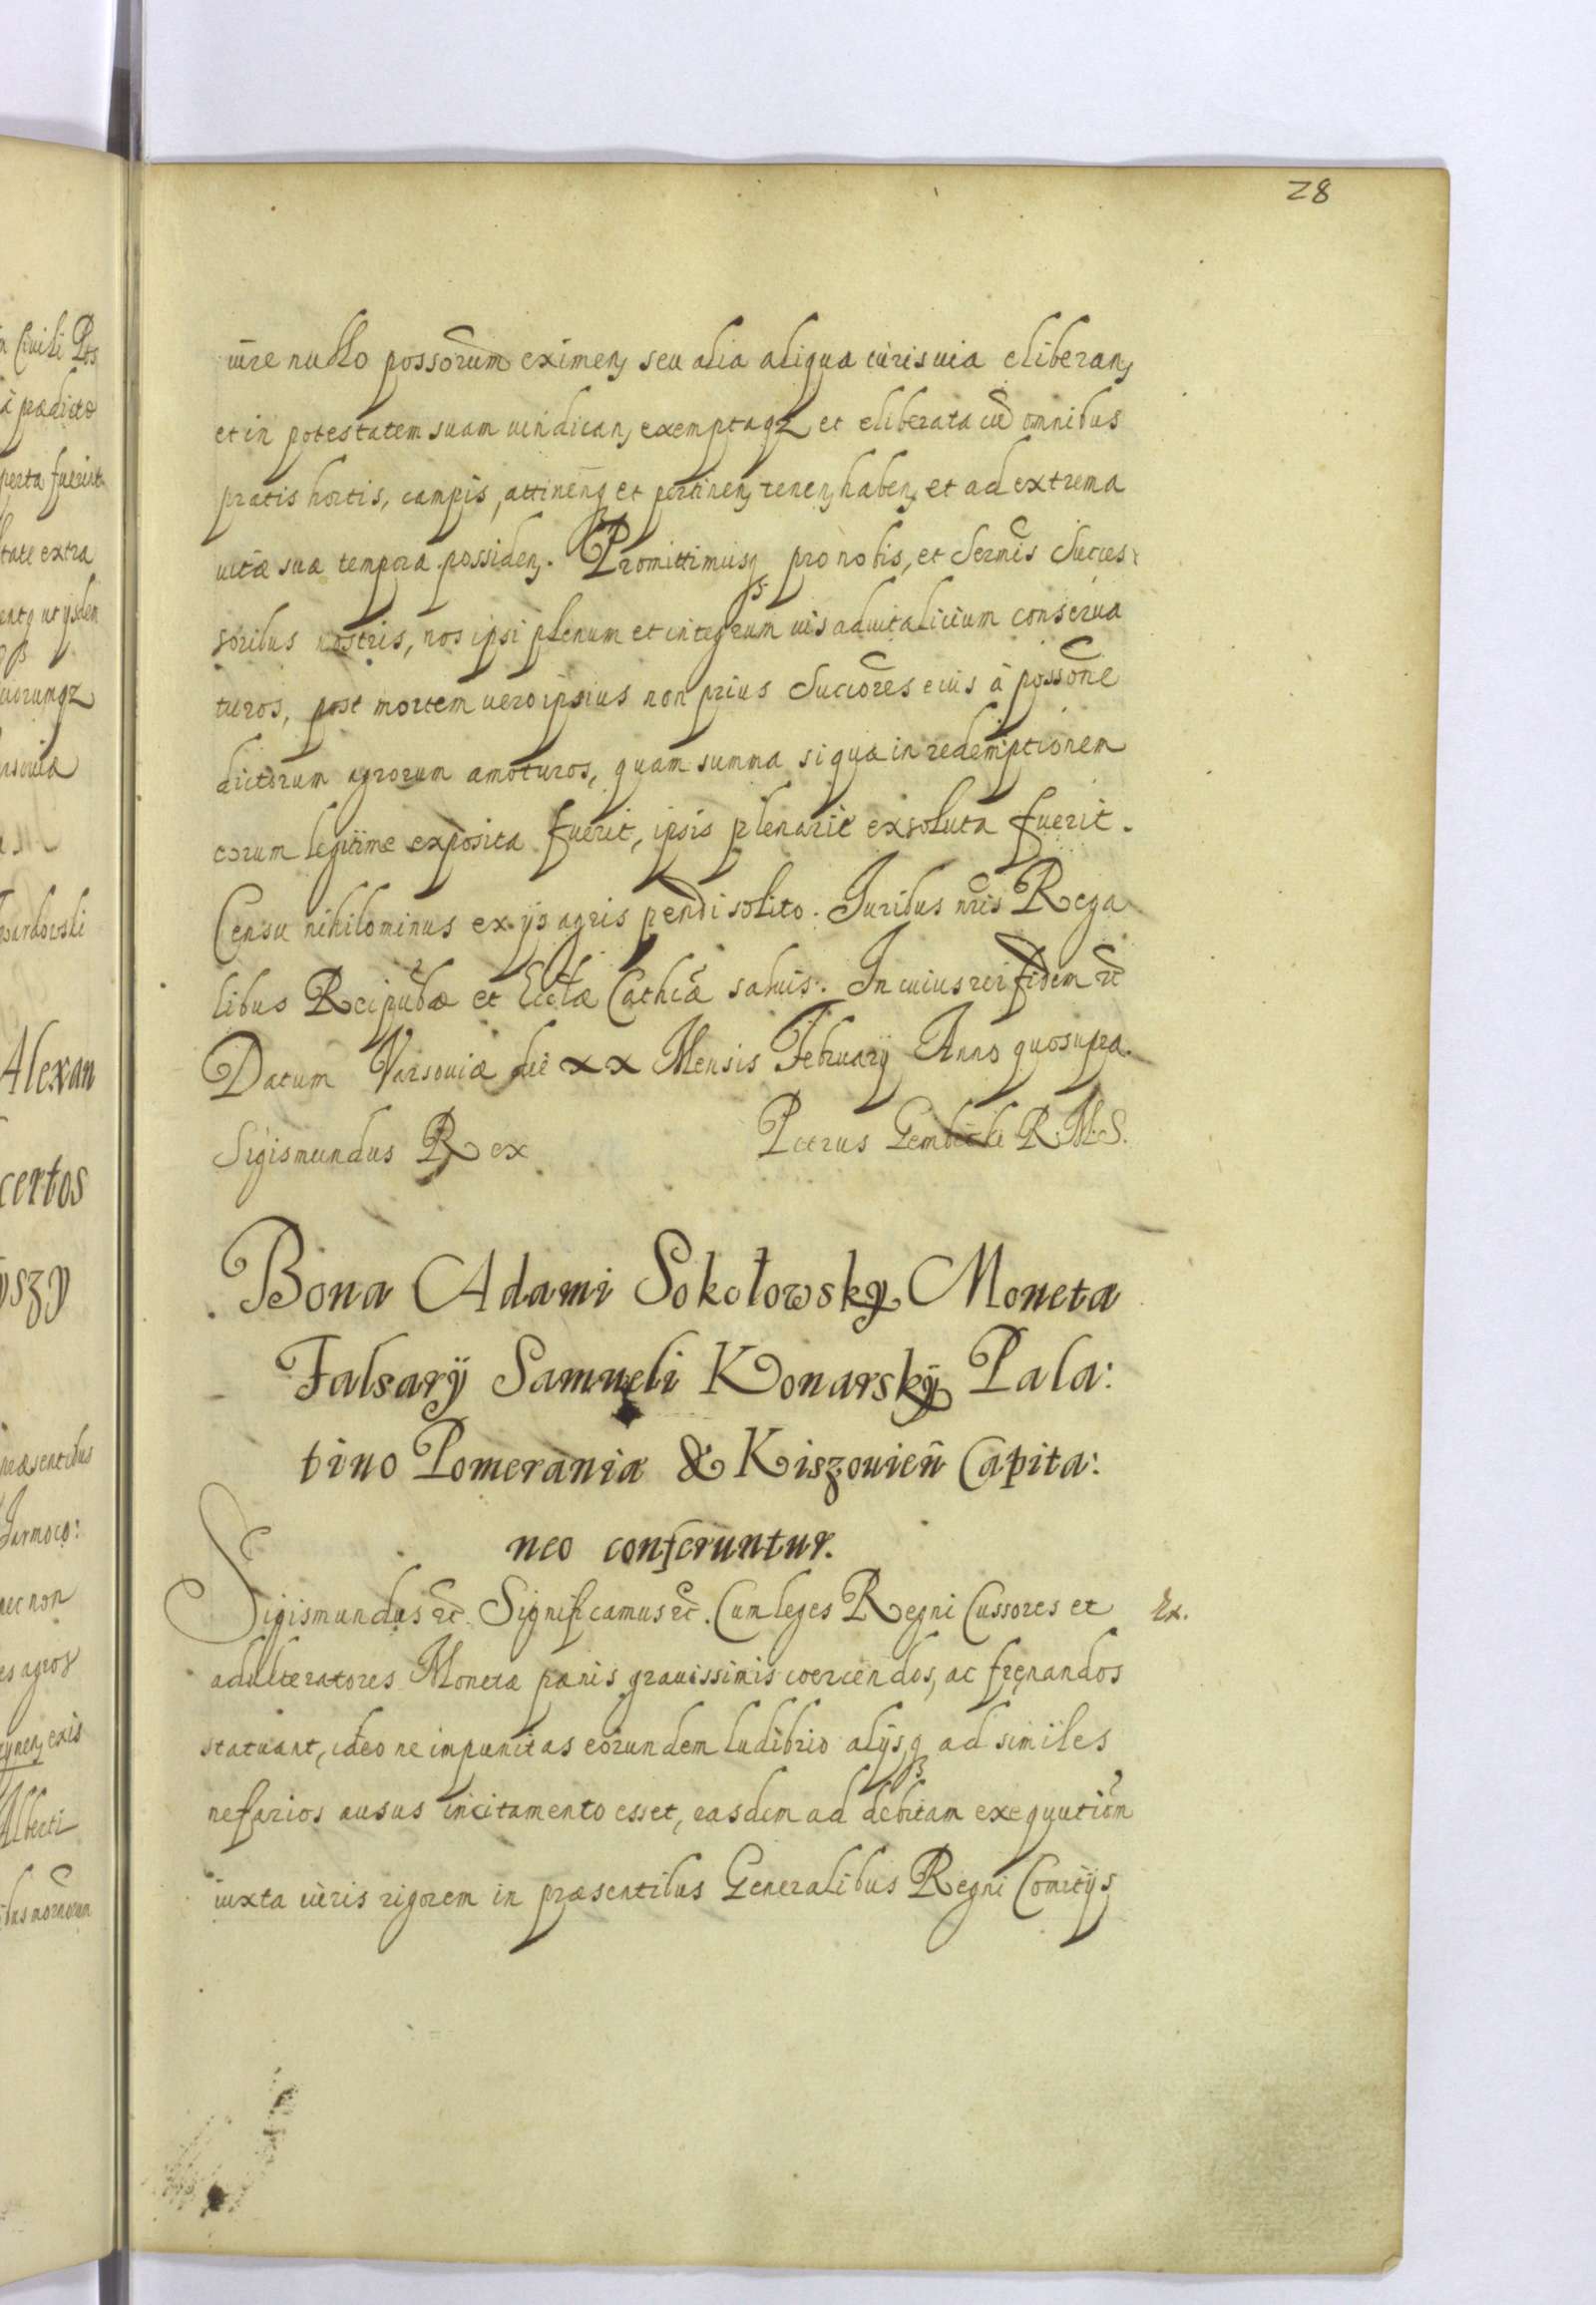 28
iure nullo possorum eximen, seu alia aliqua iuris uia eliberan,
et in potestatem suam uindican, exemptaqz et eliberata cu omnibus
pratis hortis, campis, attinen, et pertinen, tenen, haben, et ad extrema
uitæ suæ tempora possiden,. Promittimusq pro nobis, et Sermis Succes:
soribus nostris, nos ipsi plenum et integrum ius aduitalitium conserua
turos, post mortem uero ipsius non prius Succores eius à possone
dictorum agrorum amoturos, quam summa si quæ in redemptionem
eorum legitime exposita fuerit, ipsis plenarie exsoluta fuerit.
Censu nihilominus ex ijs agris pendi solito. Iuribus nris Rega
libus Reipubæ et Ecclæ Cathcæ saluis. In cuius rei fidem etc
Datum Varsouiæ die xx Mensis February Anno quo supra.
Sigismundus Rex Petrus Gembicki R.M.S.
Bona Adami Sokołowsky Moneta
Falsarÿ Samueli Konarskÿ Pala:
tino Pomeraniæ & Kiszouien Capita:
neo conferuntur.
Sigismundus etc. Significamus etc. Cum leges Regni Cussores et
Ex.
adulteratores Monetæ pænis grauissimis coercendos, ac frenandos
statuant, ideo ne impunitas eorundem ludibrio alijsq ad similes
nefarios ausus incitamento esset, easdem ad debitam exequution
iuxta iuris rigorem in præsentibus Generalibus Regni Comitijs